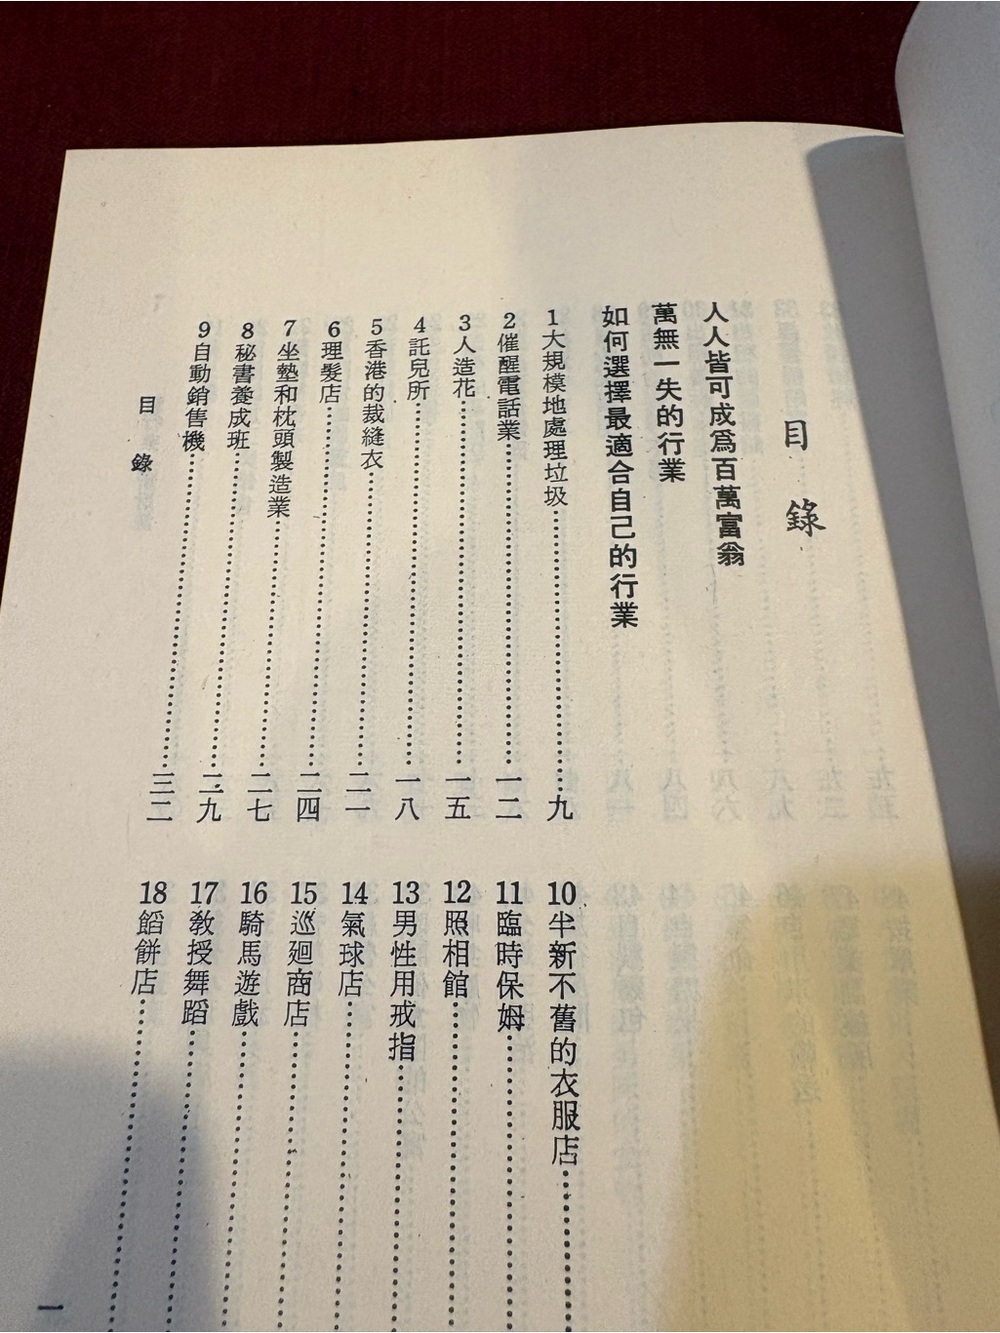 目錄
人人皆可成爲百萬富翁
萬無一失的行業
如何選擇最適合自己的行業
1大規模地處理垃圾……九
2催醒電話業……一二
3人造花……一五
4託兒所……一八
5香港的裁縫衣……二一
6理髮店……二四
7坐墊和枕頭製造業……二七
8秘書養成班……二九
9自動銷售機……三二
10半新不舊的衣服店……
11臨時保姆……
12照相館……
13男性用戒指……
14氣球店……
15巡廻商店……
16騎馬遊戲……
17教授舞蹈……
18餡餅店……
目錄
一